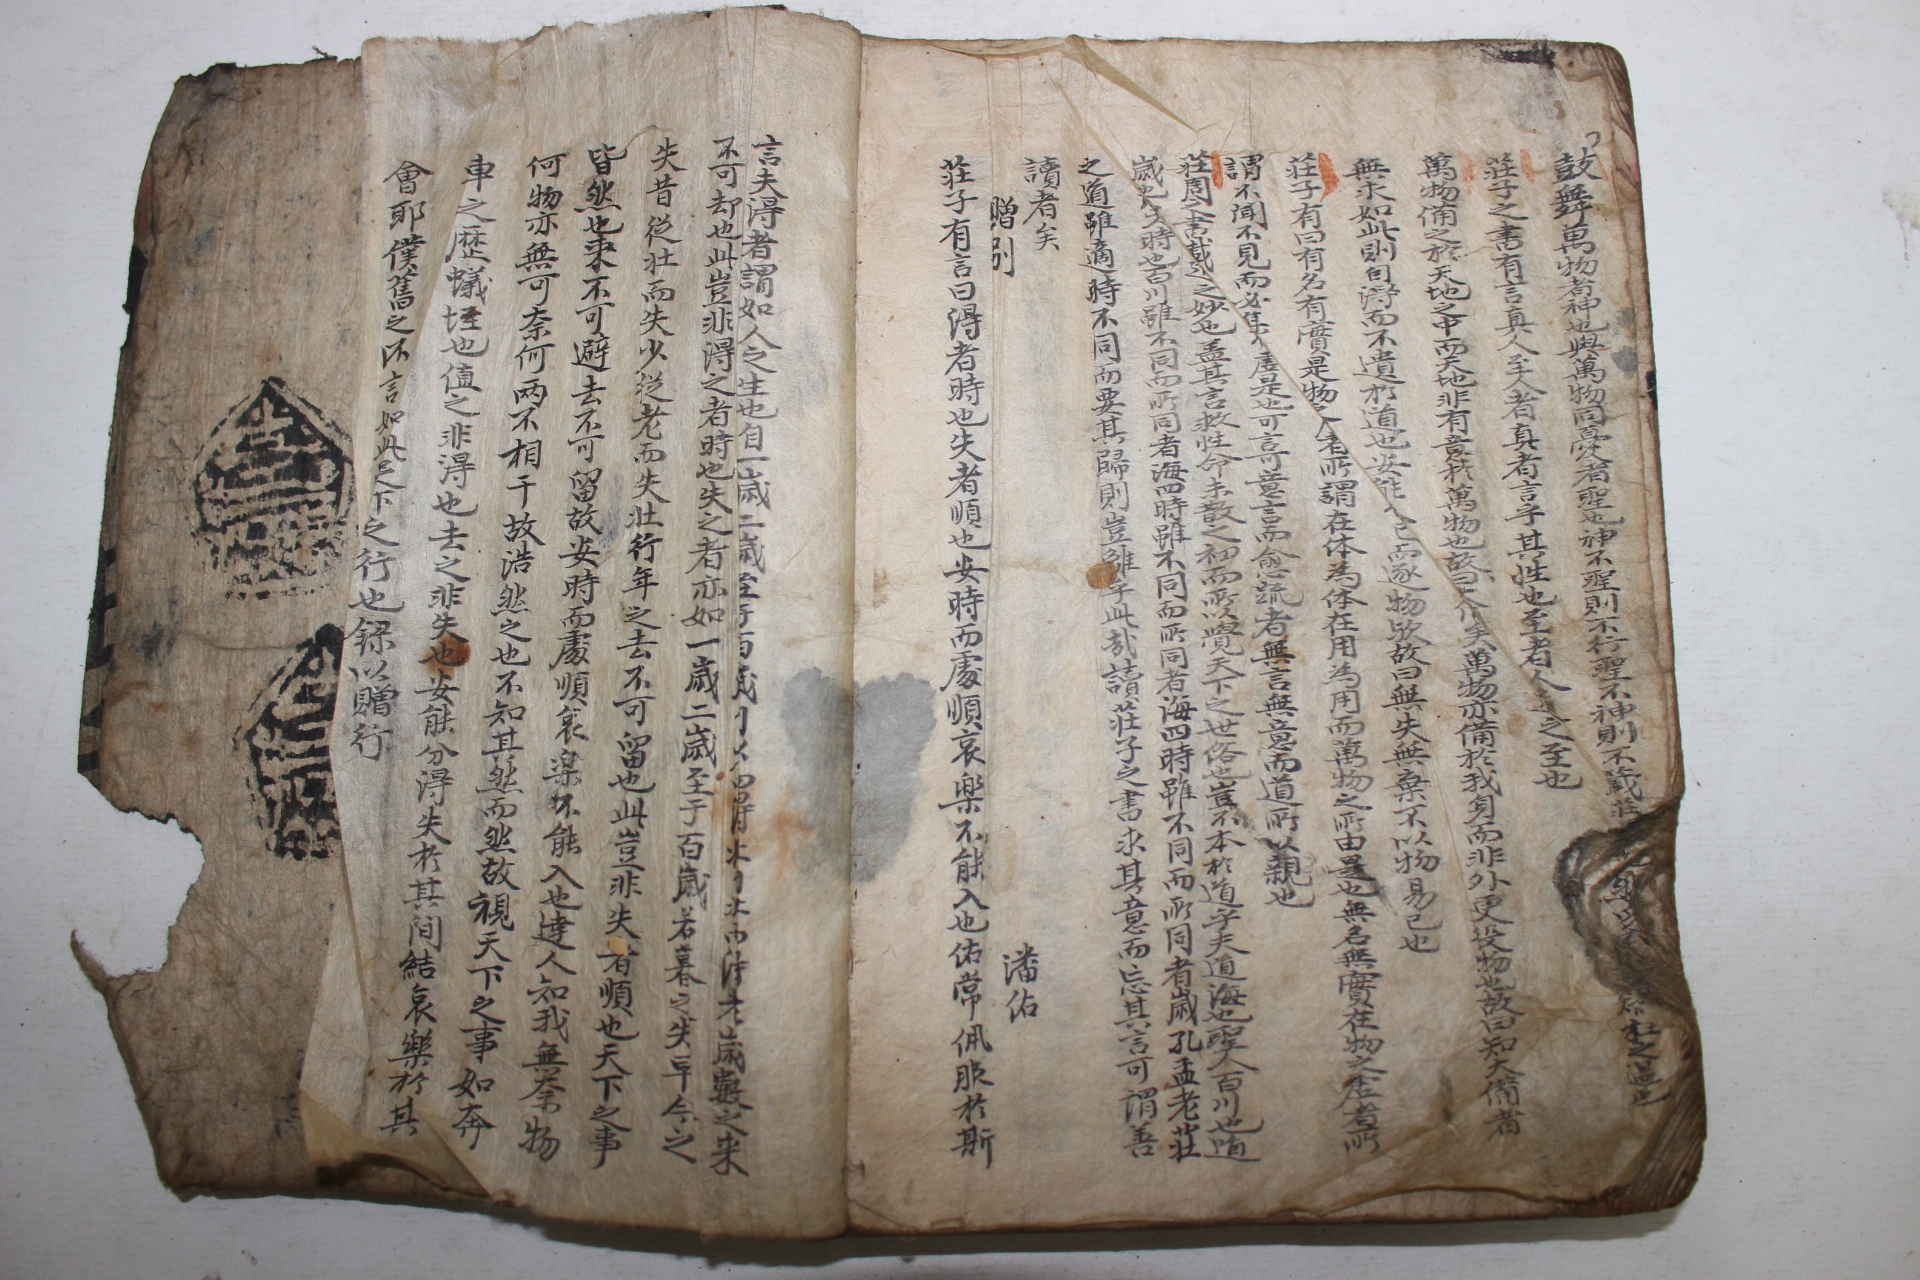 鼓舞萬物者神也與萬物同憂者聖也神不聖則不行聖不神則不藏莊
莊子之書有言真人至人者真者言乎其性也至者人道之至也
萬物備之於天地之中而天地非有意於萬物也故曰大備矣萬物亦備於我身而非外更役物也故曰知大備者
無求如此則自得而不遺於道也安能已而逐物欤故曰無失無棄不以物易己也
莊子有曰有名有實是物之者所謂在体為体在用為用而萬物之所由是也無名無實在物之虛者所
謂不聞不見而必集虛是也可言可意言而愈疏者無言無意而道所以親也
莊周之書載之妙也盖其言救性命未散之初而所以覺天下之世俗也豈不本於道乎夫道海也聖人百川也道
歲也時也百川雖不同而所同者海四時雖不同而所同者海四時雖不同而所同者歲孔孟老莊
之道雖適時不同而要其歸則豈離乎此哉讀莊子之書求其意而忘其言可謂善
讀者矣
贈別 潘佑
莊子有言曰得者時也失者順也安時而處順哀樂不能入也佑常佩服於斯
言夫得者謂如人之生也自一歲二歲至于百歲
不可却也此豈非得之者時也失之者亦如一歲二歲至于百歲若暮之失早今之
失昔從壯而失少從老而失壯行年之去不可留也此豈非失者順也天下之事
皆然也來不可避去不可留故安時而處順哀樂不能入也達人知我無奈物
何物亦無可奈何兩不相干故浩然之也不知其然而然故視天下之事如奔
車之歷蟻垤也值之非得也去之非失也安能分得失於其間結哀樂於其
會耶僕舊之不言如此足下之行也錄以贈行